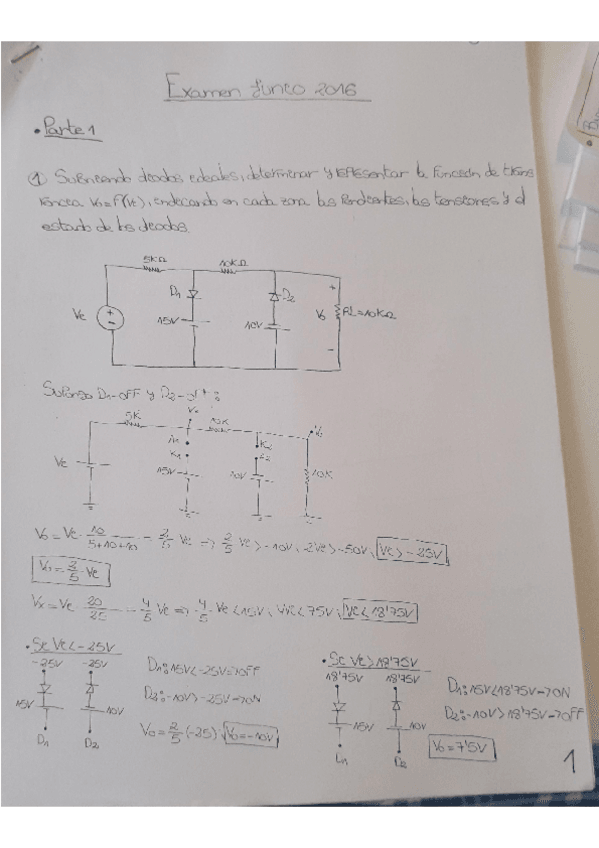 Examen Junio 2016
• Parte 1
① Suponiendo diodos ideales, determinar y representar la función de trans
ferencia Vo=f(Ve), indicando en cada zona las pendientes, las tensiones y el
estado de los diodos.
5KΩ 10KΩ
D1 D2
Ve 15V 10V Vo RL=10KΩ
+
-
Supongo D1-OFF y D2-OFF:
5K Vx 10K Vo
A1 K2
K1 A2
Ve 15V 10V 10K
Vo = Ve · 10 / 5+10+10 = 2/5 Ve => 2/5 Ve > -10V, 2Ve > -50V, Ve > -25V
Vo = 2/5 · Ve
Vx = Ve · 20/25 = 4/5 Ve => 4/5 Ve < 15V, 4Ve < 75V, Ve < 18'75V
• Si Ve < -25V
-25V -25V
15V -10V
D1 D2
D1: 15V < -25V => OFF
D2: -10V > -25V => ON
Vo = 2/5 (-25), Vo = -10V
• Si Ve > 18'75V
18'75V 18'75V
15V -10V
D1 D2
D1: 15V < 18'75V => ON
D2: -10V > 18'75V => OFF
Vo = 7'5V
1